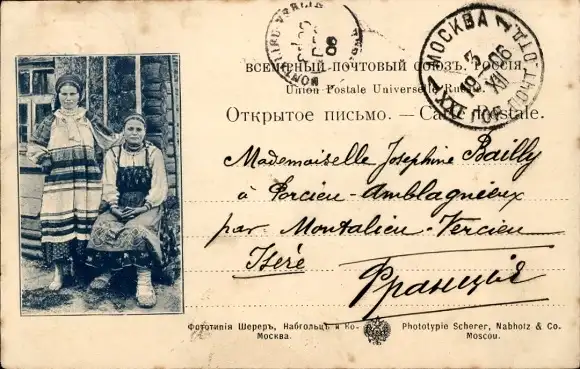 МОСКВА
3
XII
19 06
XXI ГОР. ПОЧТ. ОТД.
MONTALIEU VERCIEU
06
ВСЕМІРНЫЙ ПОЧТОВЫЙ СОЮЗЪ. РОССІЯ.
Union Postale Universelle Russie.
Открытое письмо. — Carte Postale.
Mademoiselle Josephine Bailly
à Porcieu-Amblagnieux
par Montalieu-Vercieu
Isère
Франція
Фототипія Шереръ, Набгольцъ и Ко.
Москва.
Phototypie Scherer, Nabholz & Co.
Moscou.